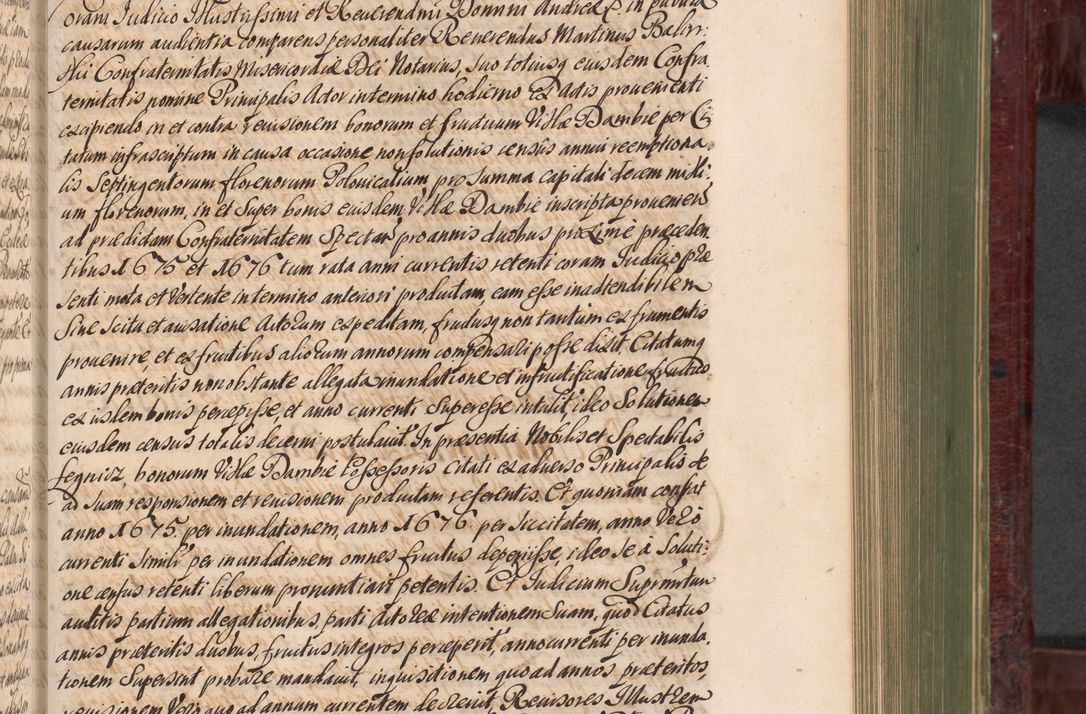 Coram Judicio Illustrissimi et Reverendmi Domini Andreæ &c. in publica
causarum audientia comparens personaliter Reverendus Martinus
Confraternitatis Misericordiæ Dei Notarius, suo totiusq eiusdem Confra
ternitatis nomine Principalis Actor in termino hodierno ex Actis provenienti
excipiendo in et contra revisionem bonorum et fructuum Villæ Dambie per Ci
tatum infrascriptum in causa occasione non solutionis census annui reemptiona
lis Septingentorum florenorum Polonicalium pro summa capitali decem milli
um florenorum, in et super bonis eiusdem Villæ Dambie inscripta proveniens
ad prædictam Confraternitatem spectans pro annis duobus proxime præceden
tibus 1675 et 1676 tum rata anni currentis retenti coram Judicio præ
senti mota et vertente in termino anteriori productam, eam esse inadtendibilem
sine scitu et avisatione Actorum expeditam, fructusq non tantum ex frumentis
provenire, et ex fructibus aliorum annorum compensari posse dixit. Citatumq
annis præteritis non obstante allegata inundatione et infructificatione fructus
ex iisdem bonis percepisse, et anno currenti superesse intulit, ideo Solutionem
eiusdem census totalis decerni postulavit. In præsentia Nobilis et Spectabilis
Legnicz, bonorum Villæ Dambie Possessoris Citati ex adverso Principalis se
ad suam responsionem et revisionem productam referentis. Et quoniam constat
anno 1675. per inundationem, anno 1676. per siccitatem, anno vero
currenti simili per inundationem omnes fructus deperiisse, ideo se à soluti
one census retenti liberum pronuntiari petentis. Et Judicium Suprmtum
auditis partium allegationibus, parti Actoreæ intentionem suam, quod Citatus
annis præteritis duobus, fructus integros perceperit, anno currenti per inunda
tionem supersint probare mandavit, inquisitionem quo ad annos præteritos,
revisionem vero quo ad annum currentem decrevit, Revisores Illustrem